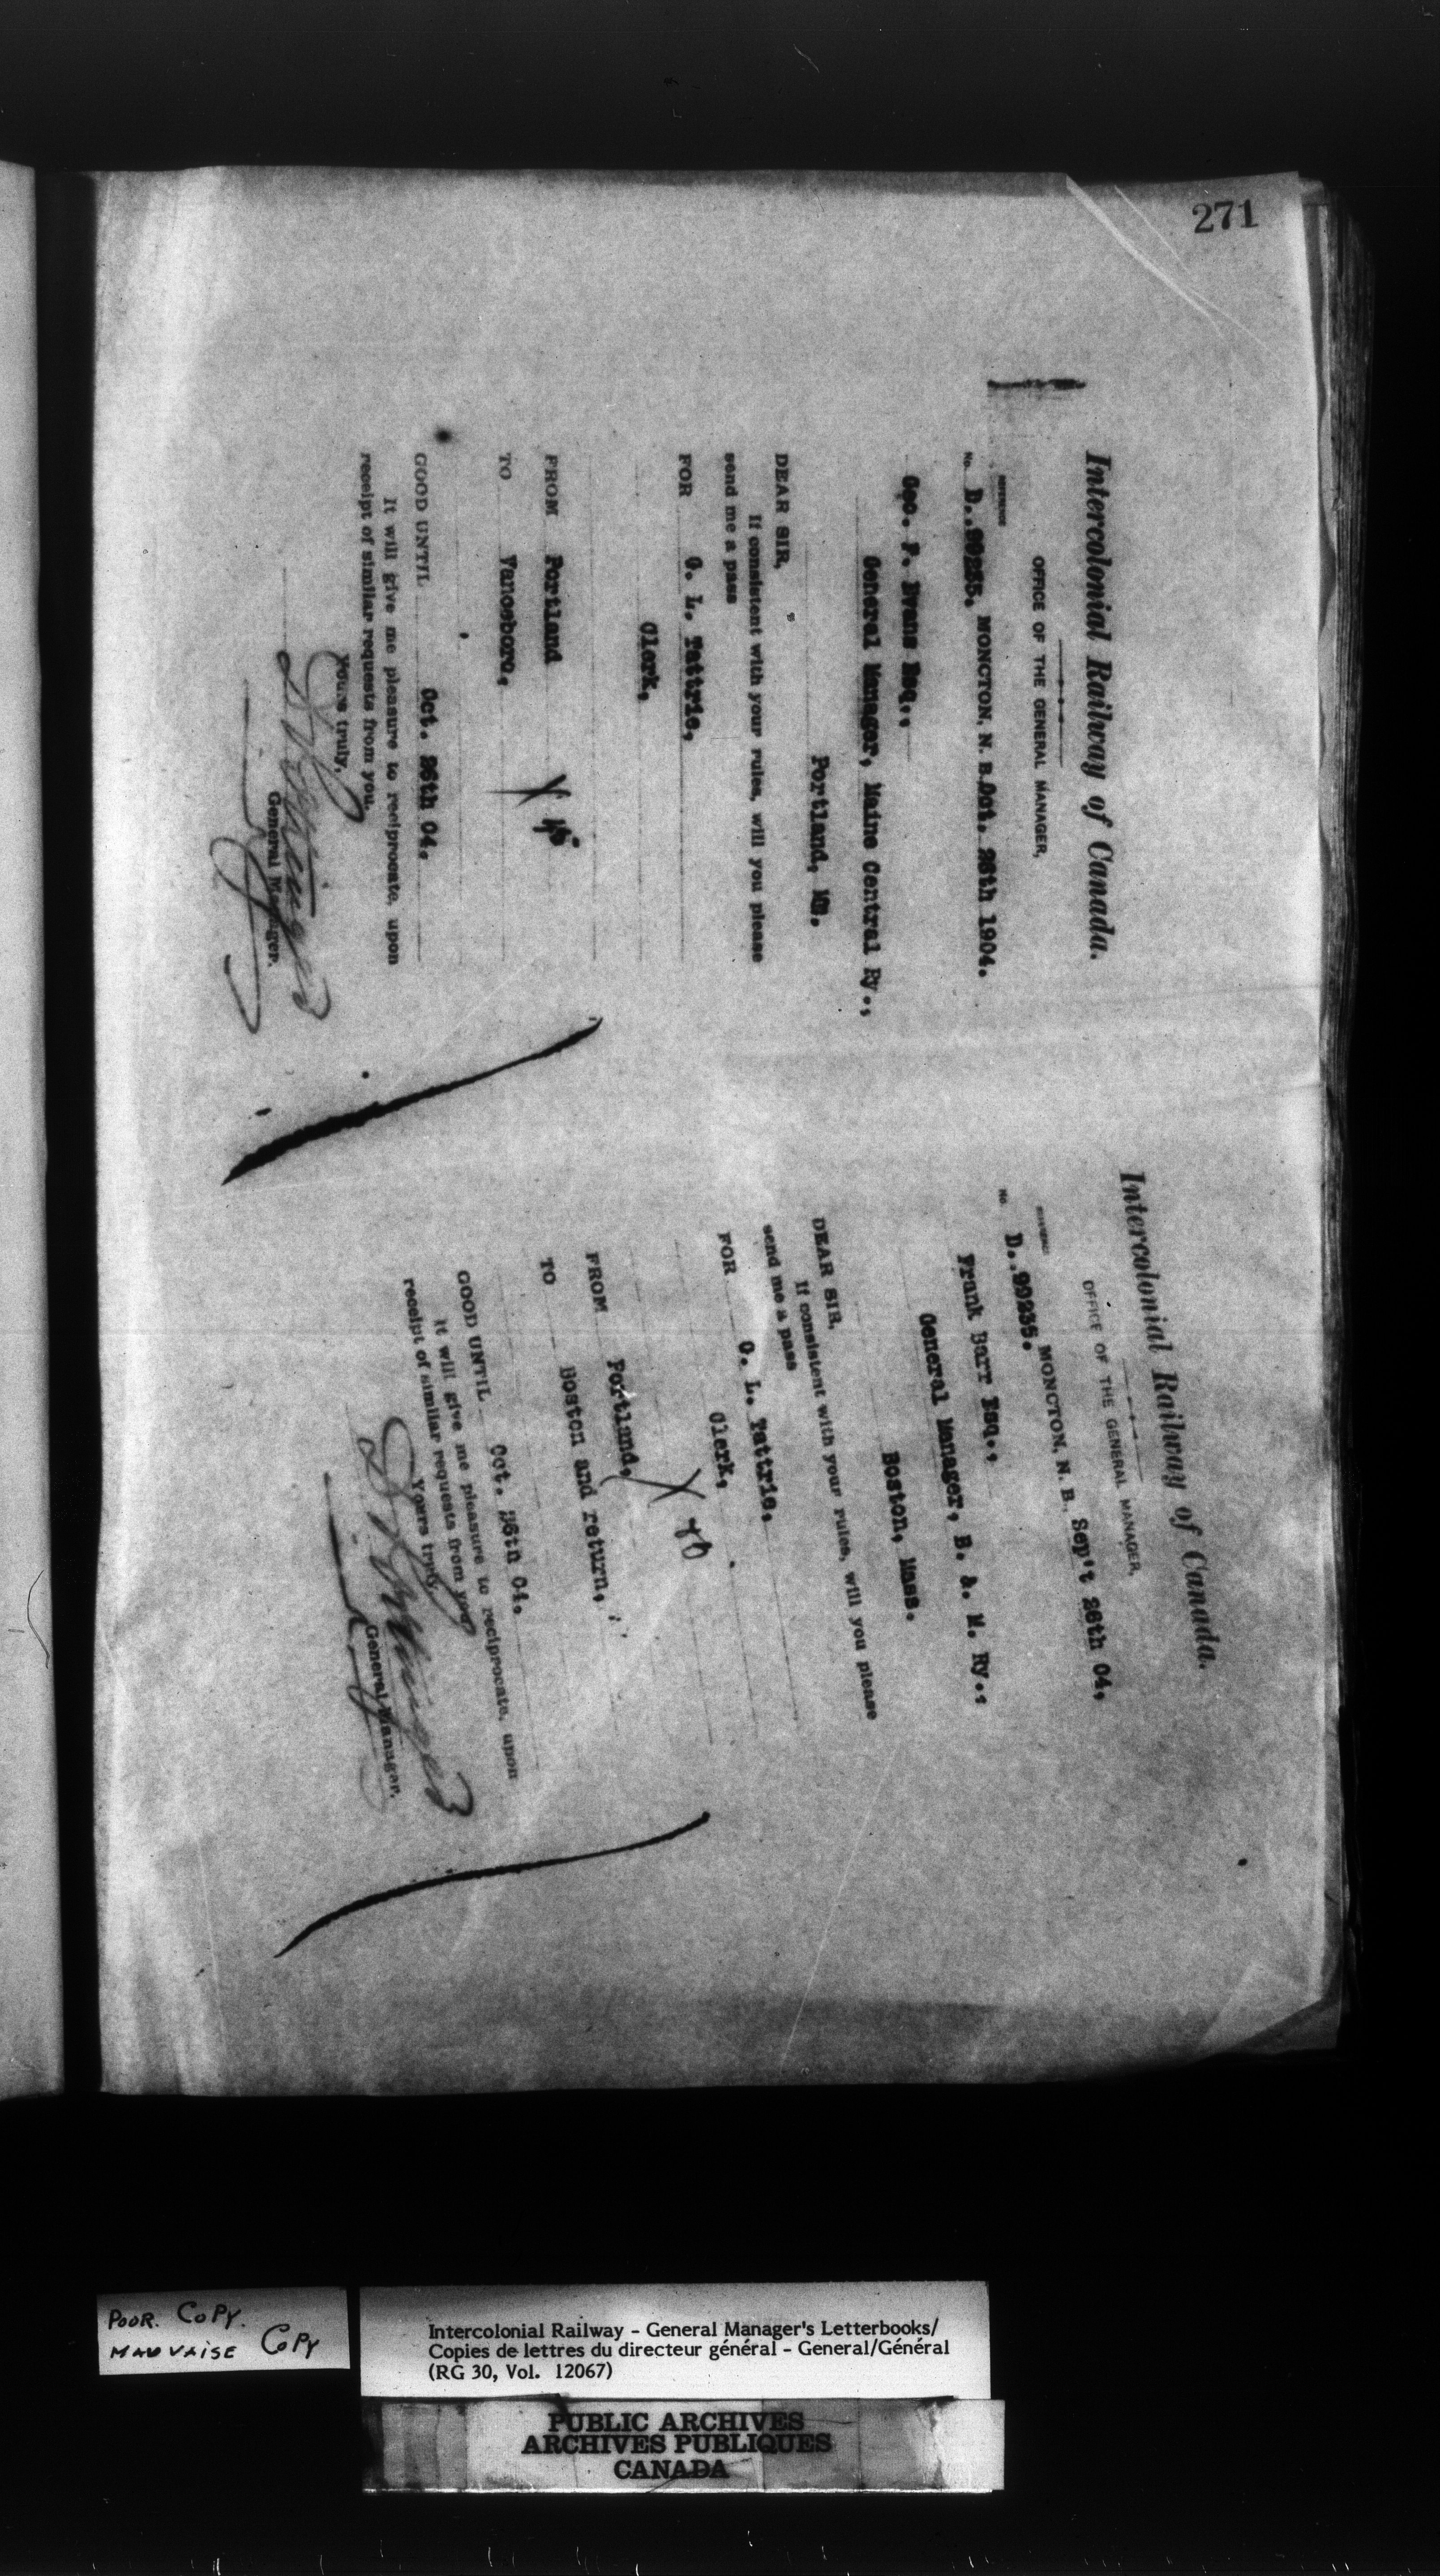 271
Intercolonial Railway of Canada.
OFFICE OF THE GENERAL MANAGER,
REFERENCE
No. D..99235. MONCTON, N. B. Oct. 26th 1904.
Geo. F. Evans Esq.,
General Manager, Maine Central Ry.,
Portland, ME.
DEAR SIR,
If consistent with your rules, will you please
send me a pass
FOR G. L. Tattrie,
Clerk,
FROM Portland
TO Vanceboro,
GOOD UNTIL Oct. 26th 04.
It will give me pleasure to reciprocate, upon
receipt of similar requests from you.
Yours truly,
General Manager.
Intercolonial Railway of Canada.
OFFICE OF THE GENERAL MANAGER,
REFERENCE
No D..99235. MONCTON, N. B. Sep't 26th 04.
Frank Barr Esq.,
General Manager, B. & M. Ry.,
Boston, Mass.
DEAR SIR,
If consistent with your rules, will you please
send me a pass
FOR G. L. Tattrie,
Clerk,
FROM Portland,
TO Boston and return,
GOOD UNTIL Oct. 26th 04.
It will give me pleasure to reciprocate, upon
receipt of similar requests from you
Yours truly,
General Manager.
POOR COPY.
MAUVAISE COPY
Intercolonial Railway - General Manager's Letterbooks/
Copies de lettres du directeur général - General/Général
(RG 30, Vol. 12067)
PUBLIC ARCHIVES
ARCHIVES PUBLIQUES
CANADA